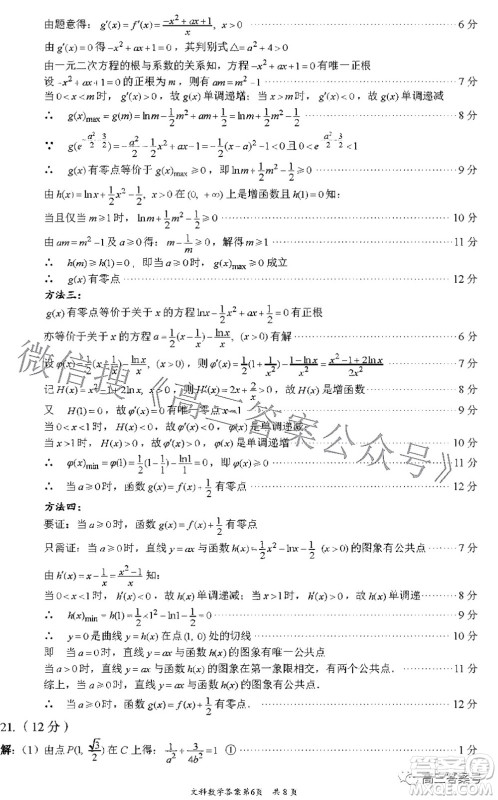 由题意得：g′(x)=f′(x)=(-x²+ax+1)/x, x>0 ……6 分
由 g′(x)=0 得 -x²+ax+1=0，其判别式△=a²+4>0
由一元二次方程的根与系数的关系知，方程 -x²+ax+1=0 有唯一正根
设 -x²+ax+1=0 的正根为 m，则有 am=m²-1 ……7 分
当 0<x<m 时，g′(x)>0，故 g(x) 单调递增；当 x>m 时，g′(x)<0，故 g(x) 单调递减
∴ g(x)max=g(m)=lnm-½m²+am+½=lnm+½m²-½ ……8 分
∴ g(x) 有零点等价于 g(x)max≥0，即 lnm+½m²-½≥0 ……9 分
由 h(x)=lnx+½x²-½, x>0 在(0, +∞) 上是增函数且 h(1)=0 知：
当且仅当 m≥1 时，lnm+½m²-½≥0 ……10 分
由 am=m²-1 及 a≥0 得：m-1/m≥0，解得 m≥1 ……11 分
∴ h(m)≥h(1)=0，即当 a≥0 时，g(x)max≥0 成立
∴ g(x) 有零点 ……12 分
方法三：
g(x) 有零点等价于关于 x 的方程 lnx-½x²+ax+½=0 有正根
亦等价于关于 x 的方程 a=½(x-1/x)-lnx/x, (x>0) 有解 ……6 分
设 φ(x)=½(x-1/x)-lnx/x, (x>0)，则 φ′(x)=½(1+1/x²)-(1-lnx)/x²=(x²-1+2lnx)/2x² ……7 分
记 H(x)=x²-1+2lnx, (x>0)，则 H′(x)=2x+2/x>0，故 H(x) 是增函数 ……8 分
又 H(1)=0，故 φ′(x)=0 有唯一零点 x=1 ……9 分
当 0<x<1 时，φ′(x)<0，故 φ(x) 是单调递减；
当 x>1 时，φ′(x)>0，故 φ(x) 是单调递增 ……10 分
∴ φ(x)min=φ(1)=½(1-1/1)-ln1/1=0，即 φ(x)≥0 ……11 分
∴ 当 a≥0 时，函数 g(x)=f(x)+½ 有零点 ……12 分
方法四：
要证：当 a≥0 时，函数 g(x)=f(x)+½ 有零点
只需证：当 a≥0 时，直线 y=ax 与函数 h(x)=½x²-lnx-½ (x>0) 的图象有公共点 ……7 分
由 h′(x)=x-1/x=(x²-1)/x 知：
当 0<x<1 时，h′(x)<0，故 h(x) 单调递减；当 x>1 时，h′(x)>0，故 h(x) 单调递 ……8 分
∴ h(x)min=h(1)=½×1²-ln1-½=0 ……9 分
∴ y=0 是曲线 y=h(x) 在点(1, 0) 处的切线 ……10 分
即 当 a=0 时，直线 y=ax 与函数 h(x) 的图象有唯一公共点
当 a>0 时，直线 y=ax 与函数 h(x) 的图象在第一象限相交，有两个公共点． ……11 分
综上，当 a≥0 时，直线 y=ax 与函数 h(x) 的图象有公共点．
∴ 当 a≥0 时，函数 g(x)=f(x)+½ 有零点 ……12 分
21.（12 分）
解：（1）由点 P(1, √3/2) 在 C 上得：1/a²+3/4b²=1 ① ……1 分
文科数学答案第6页 共 8 页
微信搜《高三答案公众号》
高三答案号